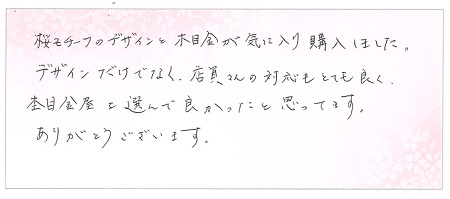 桜モチーフのデザインと木目金が気に入り購入しました。
デザインだけでなく、店員さんの対応もとても良く、
杢目金屋を選んで良かったと思ってます。
ありがとうございます。